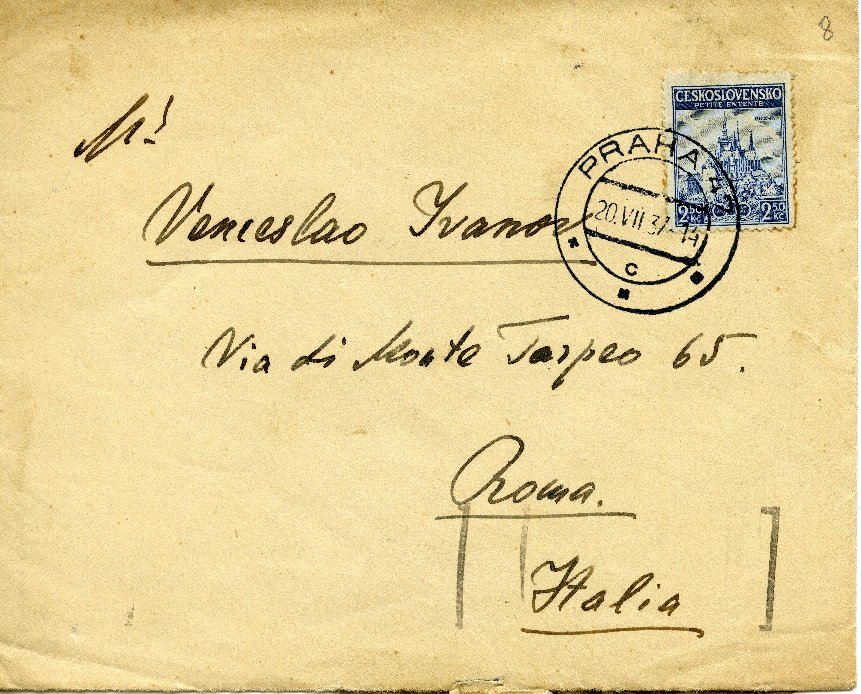 8
ČESKOSLOVENSKO
PETITE ENTENTE
2.50 2.50
Kč Kč
PRAHA
20.VII 37.-14
C
M!
Venceslao Ivanov
Via di Monte Tarpeo 65.
Roma.
Italia